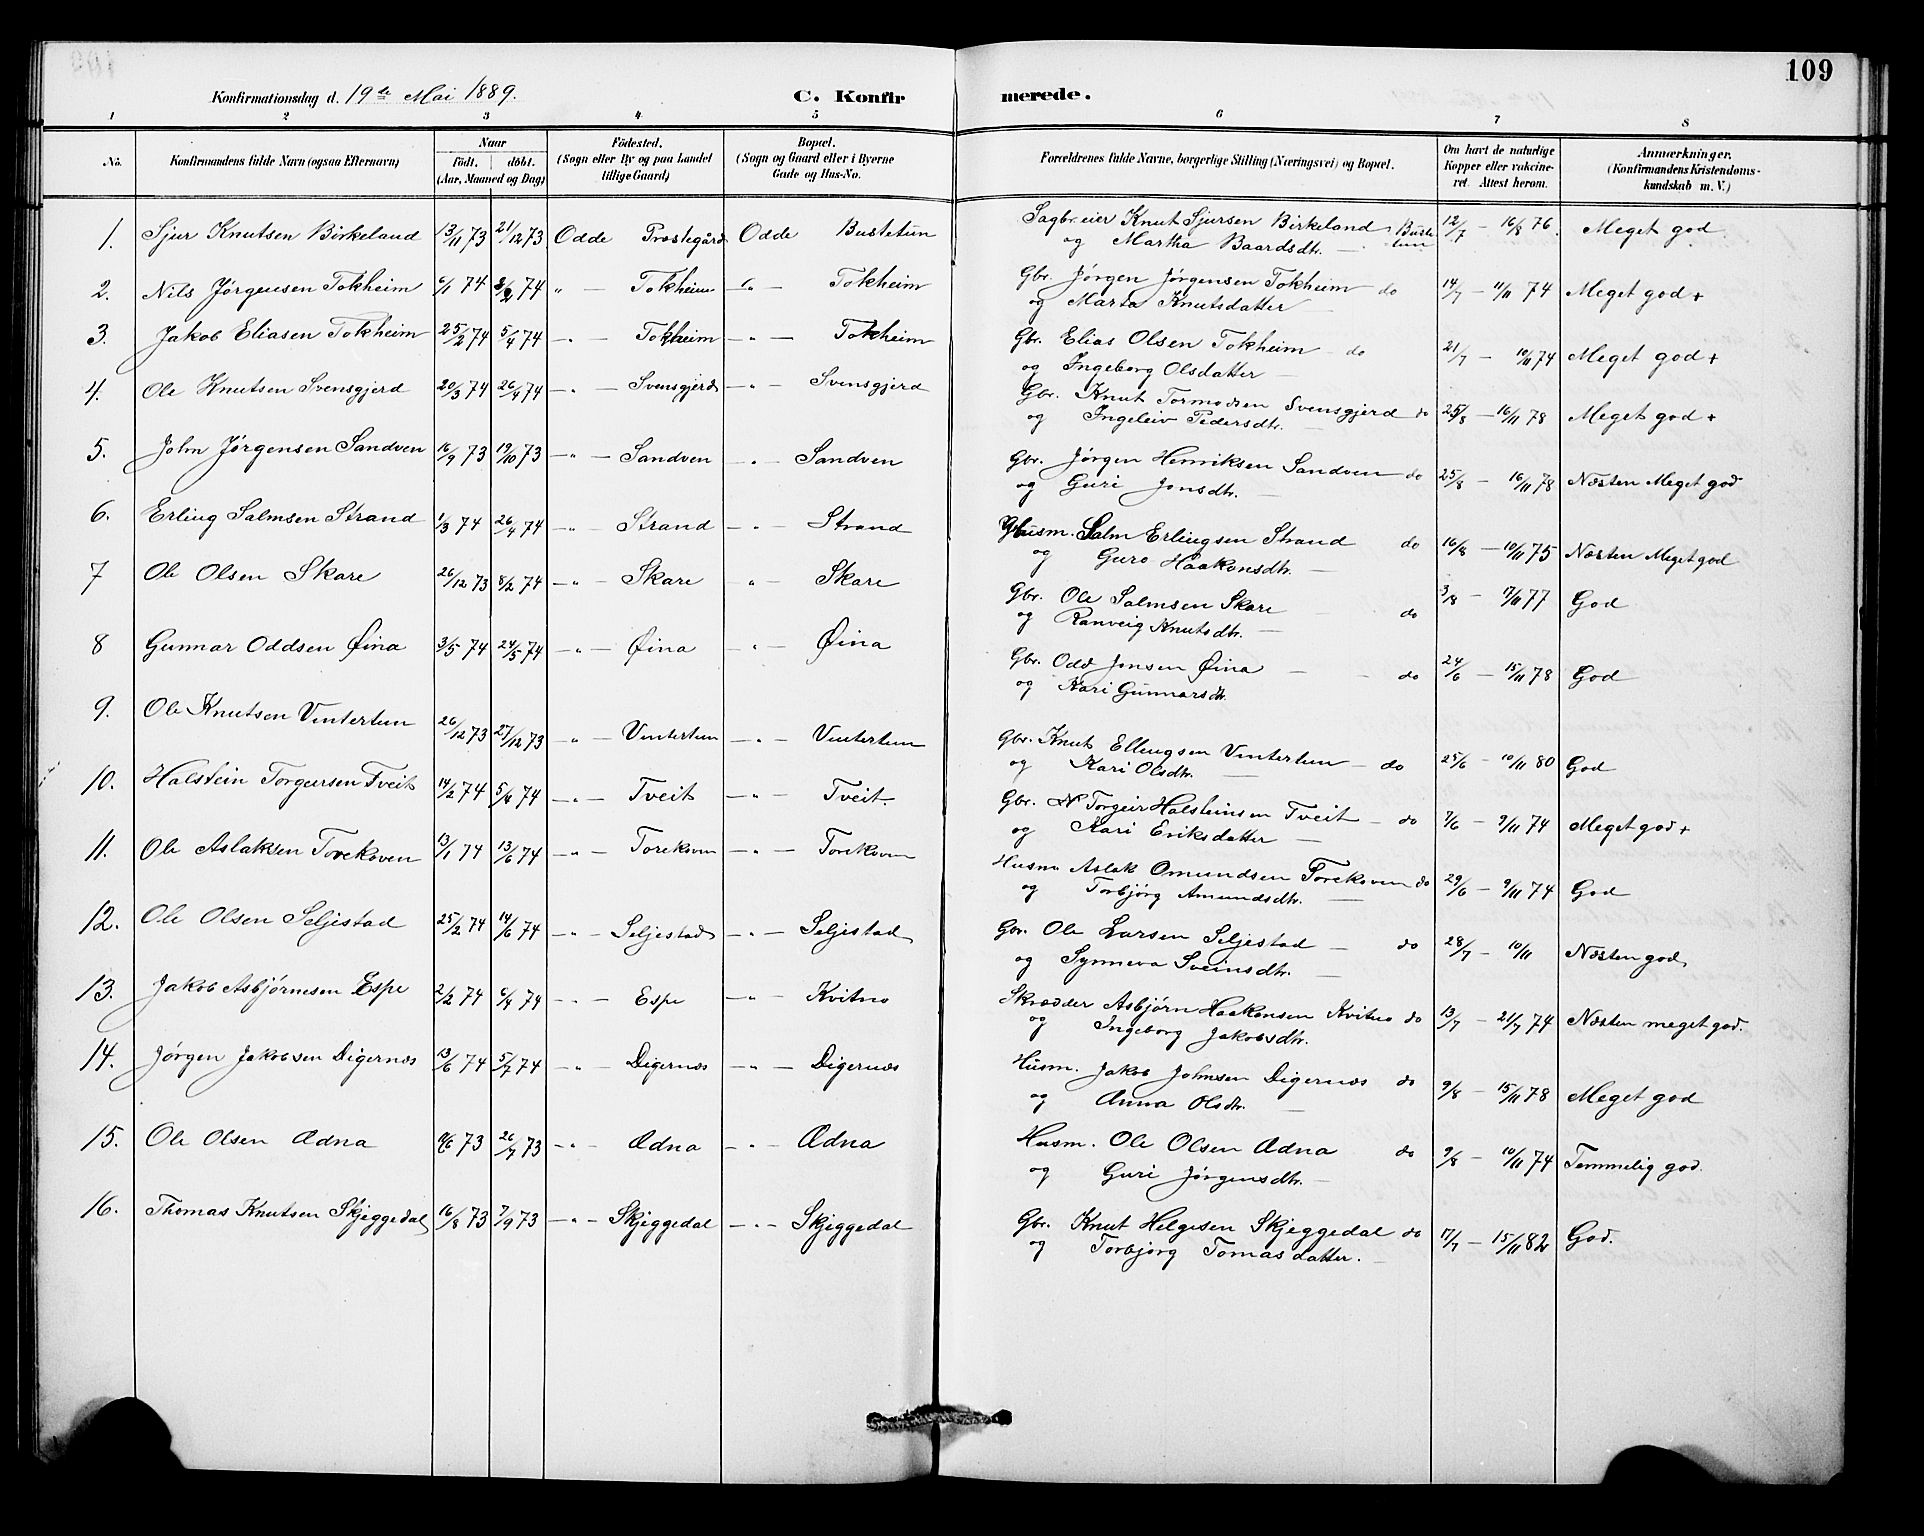 109
Konfirmationsdag d. 19de Mai 1889. C. Konfirmerede.
1 2 3 4 5 6 7 8
No. Konfirmandens fulde Navn (ogsaa Efternavn) Naar Födt. döbt. (Aar, Maaned og Dag) Födested. (Sogn eller By og paa Landet tillige Gaard) Bopæl. (Sogn og Gaard eller i Byerne Gade og Hus-No. Forældrenes fulde Navne, borgerlige Stilling (Næringsvei) og Bopæl. Om havt de naturlige Kopper eller vakcineret. Attest herom. Anmærkninger. (Konfirmandens Kristendomskundskab m. V.)
1. Sjur Knutsen Birkeland 13/11 73 21/12 73 Odde Præstegård Odde Bustetun Sagbr.eier Knut Sjursen Birkeland Bustetun 12/7 — 16/8 76. Meget god
og Martha Baardsdtr.
2. Nils Jørgensen Tokheim 6/1 74 74 " — Tokheim " Tokheim Gbr. Jørgen Jørgensen Tokheim do 14/7 — 11/11 74 Meget god +
og Marta Knutsdatter —
3. Jakob Eliasen Tokheim 25/2 74 5/4 74 — " — Tokheim — " — Tokheim Gbr. Elias Olsen Tokheim — do 21/7 — 10/11 74 Meget god +
og Ingeborg Olsdatter —
4. Ole Knutsen Svensgjerd 20/3 74 26/4 74 — " — Svensgjerd — " — Svensgjerd Gbr. Knut Tormodsen Svensgjerd do 25/8 — 16/11 78 Meget god +
og Ingeleiv Pedersdtr. —
5. John Jørgensen Sandven 16/9 73 19/10 73 — " — Sandven — " — Sandven Gbr. Jørgen Henriksen Sandven do 25/8 — 16/11 78 Næsten Meget god
og Guri Jonsdtr. —
6. Erling Salmsen Strand 1/3 74 26/4 74 — " — Strand — " — Strand Husm. Salm Erlingsen Strand do 16/8 — 10/11 75 Næsten Meget god
og Guro Haakonsdtr. —
7 Ole Olsen Skare 26/12 73 8/2 74 — " — Skare " Skare Gbr. Ole Salmsen Skare do 3/8 — 77 God
og Ranveig Knutsdtr. —
8 Gunnar Oddsen Øina 3/5 74 24/5 74 — " — Øina — " — Øina Gbr. Odd Jonsen Øina — do 24/6 — 15/11 78 God
og Kari Gunnarsdtr.
9. Ole Knutsen Vintertun 26/12 73 27/12 73 — " — Vintertun — " — Vintertun Gbr. Knut Ellingsen Vintertun — do 25/6 — 10/11 80 God
og Kari Olsdtr. —
10. Halstein Torgeirsen Tveit 14/2 74 5/4 74 — " — Tveit — " — Tveit. Gbr. Torgeir Halsteinsen Tveit — do 7/6 — 9/11 74 Meget god +
og Kari Eriksdatter —
11. Ole Aslaksen Torekoven 13/1 74 13/6 74 — " — Torekoven — " — Torekoven Husm Aslak Omundsen Torekoven do 29/6 — 9/11 74 God
og Torbjörg Amundsdtr. —
12. Ole Olsen Seljestad 25/2 74 14/6 74 — " — Seljestad — " — Seljestad Gbr. Ole Larsen Seljestad — do 28/7 — 10/11 Næsten god
og Synneva Sveinsdtr. —
13. Jakob Asbjørnesen Espe 2/2 74 6/4 74 — " — Espe — " — Kvitno Skrædder Asbjørn Haakonsen Kvitno do 13/7 — 21/7 74 Næsten meget god.
og Ingeborg Jakobsdtr.
14. Jørgen Jakobsen Digernæs 13/6 74 5/7 74 — " — Digernæs — " — Digernæs Husm. Jakob Johnsen Digernæs do 9/8 — 15/11 78 Meget god
og Anna Olsdtr. —
15. Ole Olsen Ædna 73 26/7 73 — " — Ædna — " — Ædna Husm. Ole Olsen Ædna do 9/8 — 10/11 74 Temmelig god.
og Guri Jørgensdtr. —
16. Thomas Knutsen Skjeggedal 16/8 73 7/9 73 — " — Skjeggedal — " — Skjeggedal Gbr. Knut Helgesen Skjeggedal do 17/7 — 15/11 82 God.
og Torbjörg Tomasdatter. —